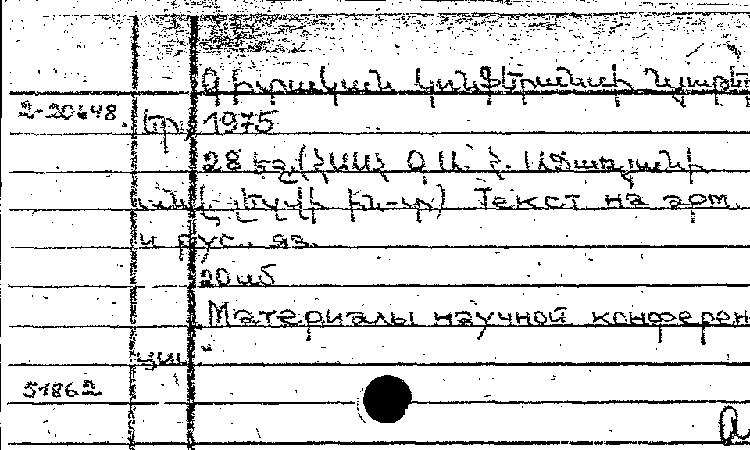 Գիտական կոնֆերանսի նյութե
2-20648. Եր. 1975
28 էջ (ՀՍՍՀ Գ.Ա. Հ. Աճառյանի
անվ. լեզվի ին-տ) Текст на арм.
и рус. яз.
20 մб
Материалы научной конферен-
ции.
51862